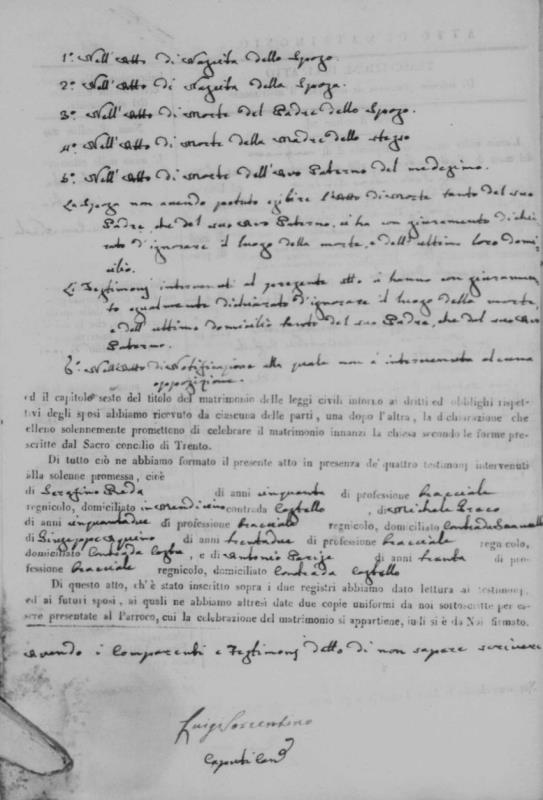 1.º Nell'Atto di Nascita dello Sposo.
2.º Nell'Atto di Nascita della Sposa.
3.º Nell'Atto di Morte del Padre dello Sposo.
4.º Nell'Atto di Morte della Madre dello stesso
5.º Nell'Atto di Morte dell'Avo Paterno del medesimo.
La Sposa non avendo potuto esibire l'Atto di Morte tanto del suo
Padre, che del suo Avo Paterno, ci ha con giuramento dichia
rato d'ignorare il luogo della morte, e dell'ultimo loro domi
cilio.
Li Testimonj intervenuti al presente atto ci hanno con giuramen
to egualmente dichiarato d'ignorare il luogo della morte,
e dell'ultimo domicilio tanto del suo Padre, che del suo Avo
Paterno.
6.º Nell'Atto di Notificazione alla quale non è intervenuta alcuna
opposizione.
ed il capitolo sesto del titolo del matrimonio delle leggi civili intorno ai dritti ed obblighi rispet-
tivi degli sposi abbiamo ricevuto da ciascuna delle parti, una dopo l'altra, la dichiarazione che
elleno solennemente promettono di celebrare il matrimonio innanzi la chiesa secondo le forme pre-
scritte dal Sacro concilio di Trento.
Di tutto ciò ne abbiamo formato il presente atto in presenza de' quattro testimonj intervenuti
alla solenne promessa, cioè
di Serafino Reda di anni cinquanta di professione bracciale
regnicolo, domiciliato in Mendicino contrada Castello, di Michele Greco
di anni cinquantadue di professione bracciale regnicolo, domiciliato Contrada
di Giuseppe Aquino di anni trentadue di professione bracciale regnicolo,
domiciliato Contrada, e di Antonio Parise di anni trenta di pro-
fessione bracciale regnicolo, domiciliato Contrada Castello
Di questo atto, ch'è stato inscritto sopra i due registri abbiamo dato lettura ai testimonj,
ed ai futuri sposi, ai quali ne abbiamo altresì date due copie uniformi da noi sottoscritte per es-
sere presentate al Parroco, cui la celebrazione del matrimonio si appartiene, indi si è da Noi firmato.
Avendo i Comparenti e Testimonj detto di non sapere scrivere
Luigi Sorrentino